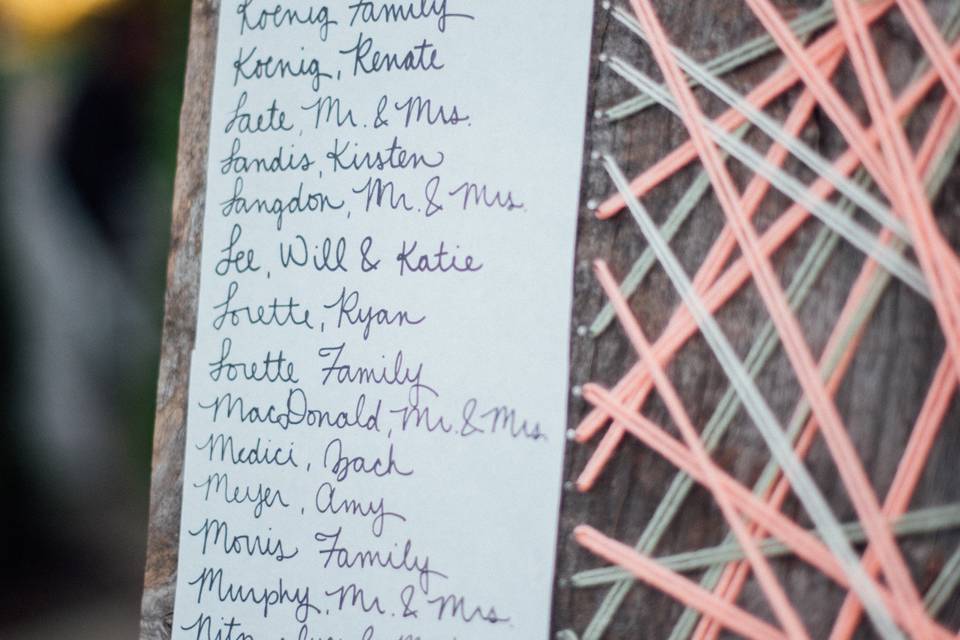 Koenig Family
Koenig, Renate
Laete, Mr. & Mrs.
Landis, Kirsten
Langdon, Mr. & Mrs.
Lee, Will & Katie
Lorette, Ryan
Lorette Family
MacDonald, Mr. & Mrs.
Medici, Zach
Meyer, Amy
Morris Family
Murphy, Mr. & Mrs.